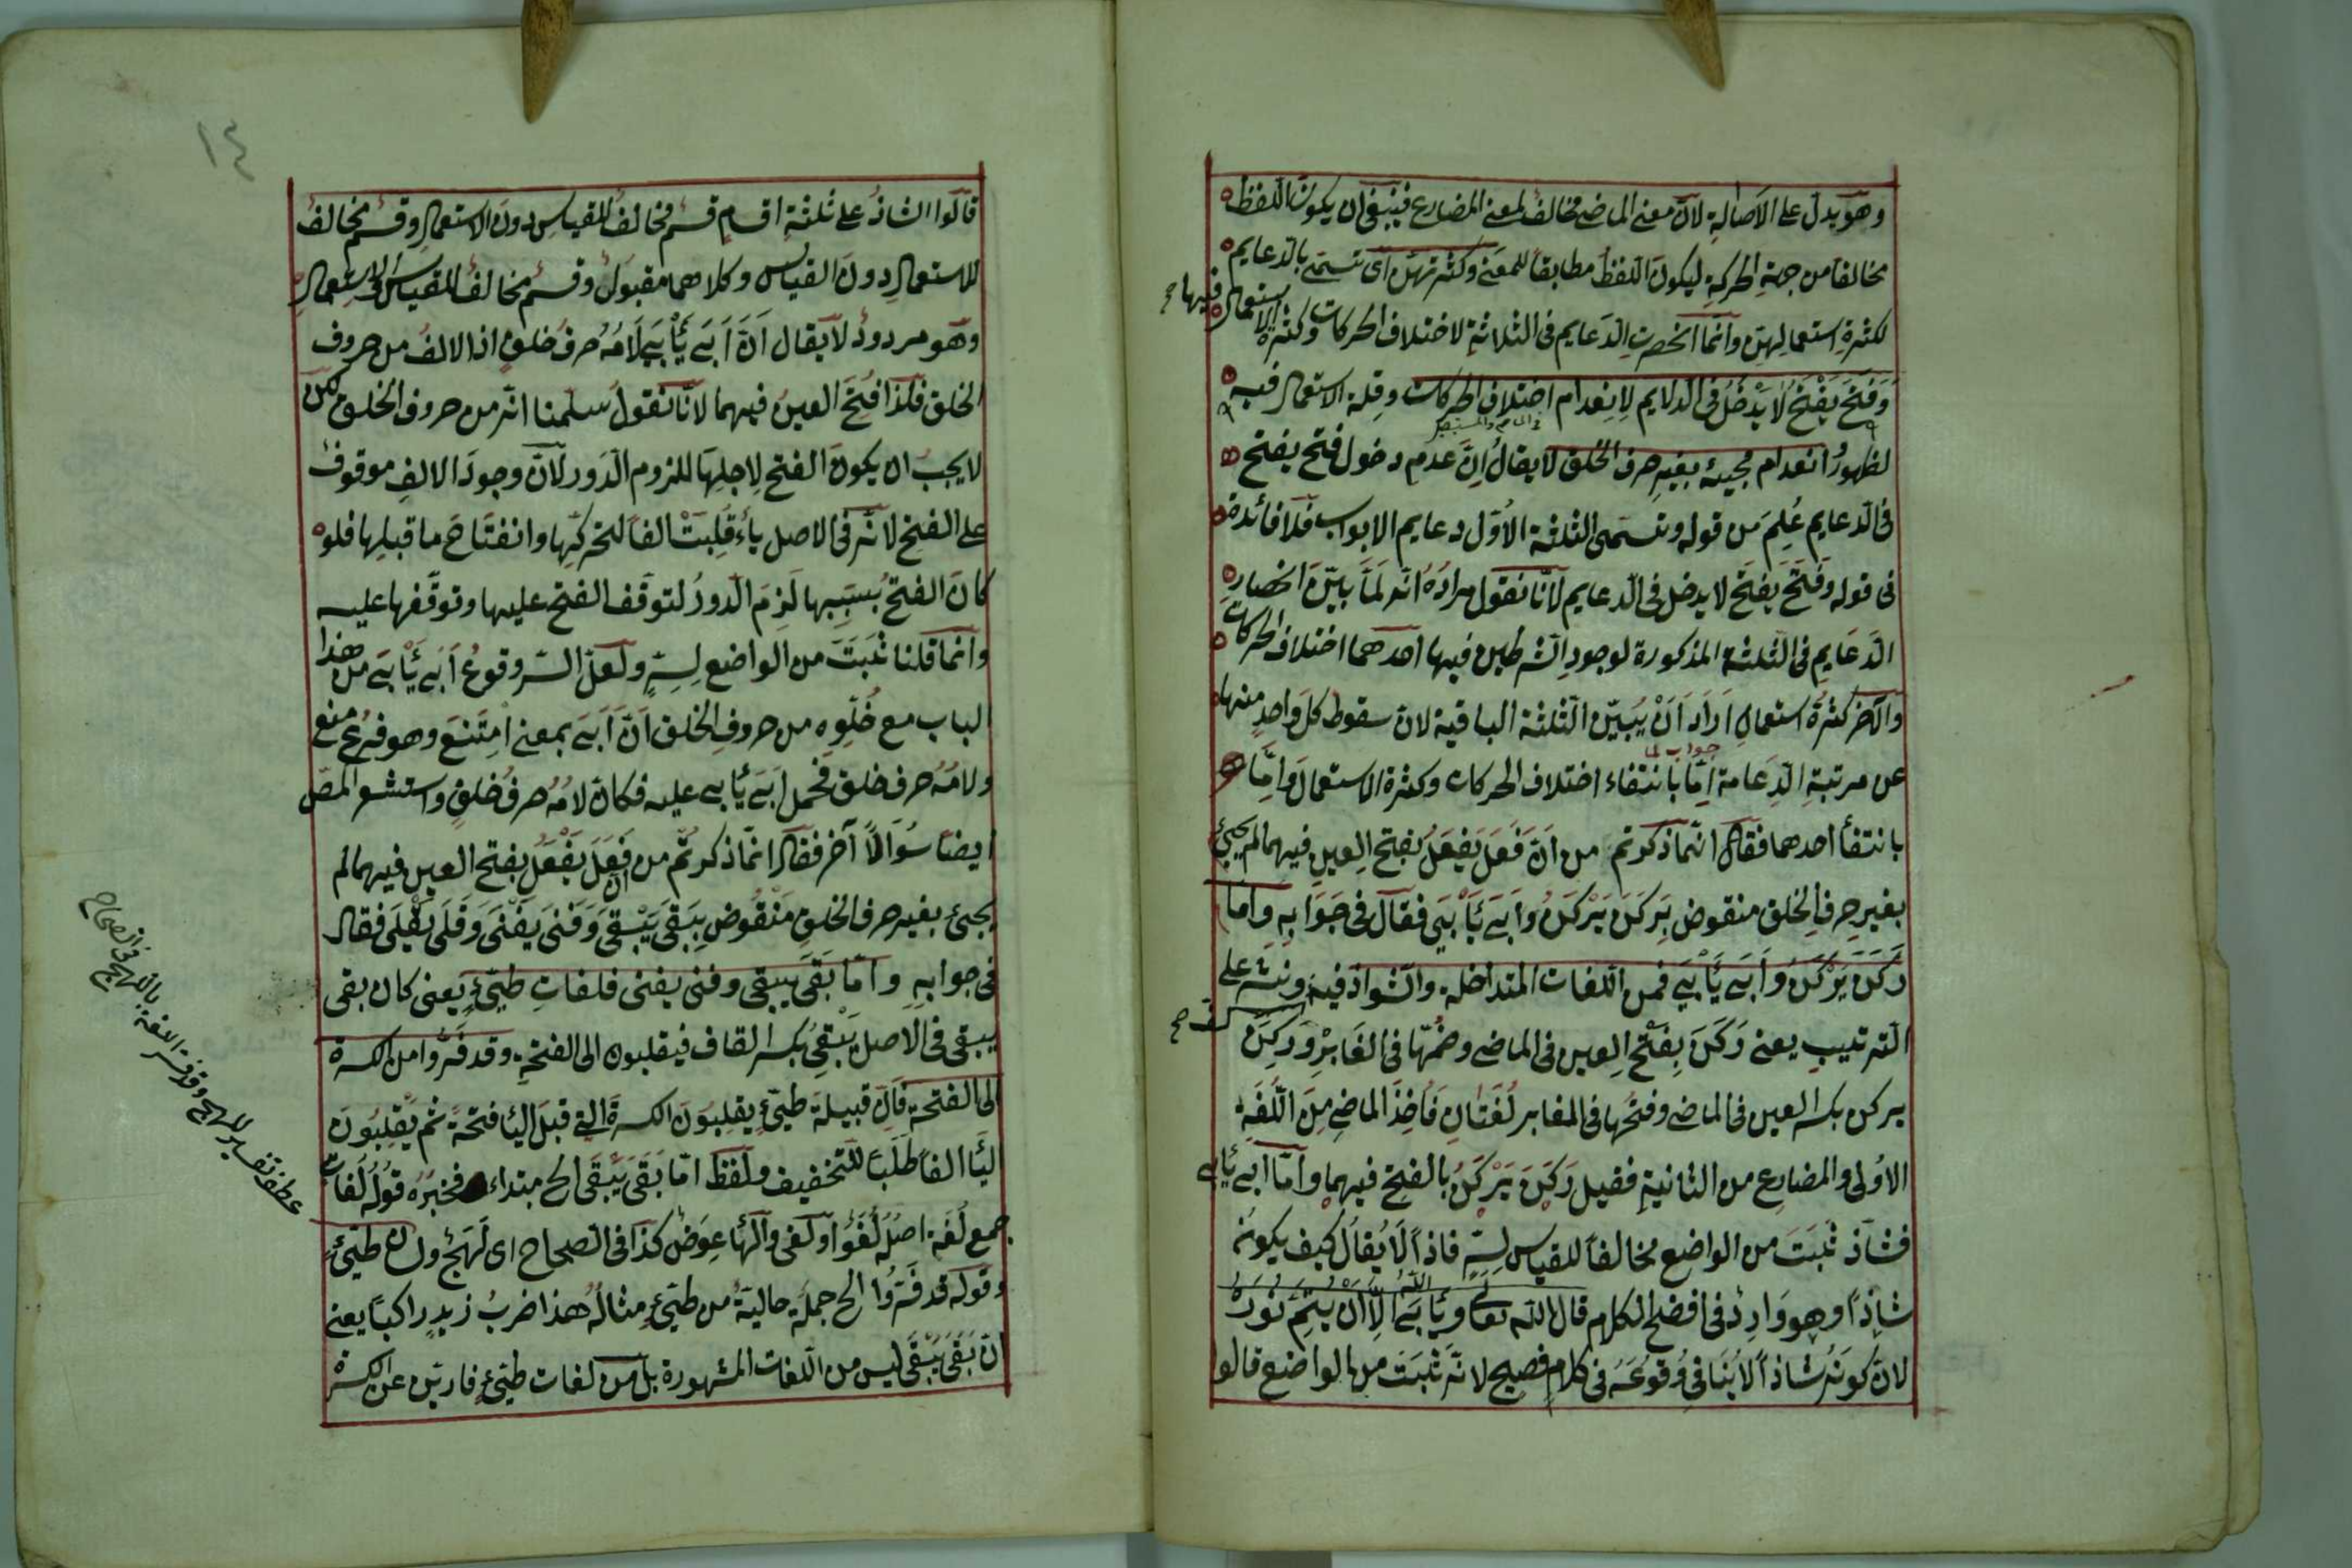 وهو يدل على الاصالة لان معنى الماضى مخالف لمعنى المضارع فينبغى ان يكون اللفظ
مخالفا من جهة الحركة ليكون اللفظ مطابقا للمعنى وكثرتهن اى تسمى بالدعايم
لكثرة استعمالهن وانما انحصرت الدعايم فى الثلاثة لاختلاف الحركات وكثرة الاستعمال فيها صح
وَفَتَحَ يَفْتَحُ لا يَدْخُلُ فى الدلايم لانعدام اختلاف الحركات وقلة الاستعمال فيه
لظهور انعدام مجيئه بغير حرف الحلق لا يقال اِنَّ عدم دخول فتح يفتح
فى الدعايم عُلِمَ من قوله وتسمى الثلثة الاُوَل دعايم الابواب فلا فائدة
فى قوله وفَتَحَ يَفتَح لا يدخل فى الدعايم لانّا نقول مراده انّه لَمّا بيّن انحصار
الدَعَايم فى الثلثة المذكورة لوجود الشرطين فيها احدهما اختلاف الحركات
والآخر كثرة استعمال اَرَادَ اَنْ يُبَيّن الثلثة الباقية لان سقوط كل واحد منها
عن مرتبة الدِعَامة اِمّا بانتفاء اختلاف الحركات وكثرة الاستعمال واِمّا
جواب لما
بانتفأ احدهما فقال انّما ذكرتم من اَنّ فَعَلَ يَفعَلُ بفتح العين فيهما لم يجئ
بغير حرف الحلق منقوض بِرَكَنَ يَرْكَنُ واَبَى يَأْبَى فقال فى جَوَابِه واَمّا
رَكَنَ يَرْكَنُ واَبَى يَأْبَى فمن اللغات المتداخلة والشواذ فيه ونشر على
الترتيب يعنى رَكَنَ بِفَتْحِ العين فى الماضى وضمّها فى الغَابِر وَرَكِنَ
يركن بكسر العين فى الماضى وفتحها فى الغابر لُغَتَانِ فَاُخِذَ الماضى مِنَ اللُّغَةِ
الاُولى والمضارع من الثانية فقيل رَكَنَ يَرْكَنُ بالفتح فيهما واَمّا ابى يأبى
فشاذ ثَبَتَ من الواضع مخالفاً للقياس لِسِرٍّ فاذاً لا يُقالُ كيف يكونُ
شاذاً وهو وَارِدٌ فى افصح الكلام قال الله تعالى ويَأْبَى اللّٰهُ اِلّا اَنْ يُتِمَّ نُورَهُ
لانّ كونَهُ شاذاً لا يُنافى وُقُوعَهُ فى كلامٍ فصيح لانّه ثَبَتَ من الواضع قالوا
١٤
قالوا الشاذُ على ثلثة اقسام قسمٌ مخالفُ للقياس دون الاستعمال وقسم مخالف
للاستعمال دون القياس وكلاهما مقبول وقسم مخالف للقياس والاستعمال
وهو مردودٌ لا يقال اَنَّ اَبَى يَأْبَى لَامُهُ حرفُ حلقٍ اذ الالف من حروف
الحلق فلذا فُتِحَ العين فيهما لانّا نقول سلّمنا انّه من حروف الحلق لكن
لا يجب ان يكون الفتح لاجلها للزوم الدَور لانّ وجودَ الالفِ موقوف
على الفتح لانّه فى الاصل ياءٌ قُلِبَتْ الفاً لتحركِها وانفتاح ما قبلِها فلو
كان الفتح بسببها لَزِمَ الدورُ لتوقف الفتح عليها وتوقّفها عليه
وانما قلنا ثَبَتَ من الواضع لِسِرٍّ ولعلّ السّر وقوعُ اَبَى يَأْبَى من هذا
الباب مع خُلُوِّه من حروف الحلق اَنّ اَبَى بمعنى اِمتَنَعَ وهو فرع منع
ولامُهُ حرف حلق فحمل اَبَى يأبى عليه فكان لامُهُ حرفُ حلقٍ واستشعر المص
ايضا سُؤَالاً آخر فقال انّما ذكرتُم من اَن فَعَلَ يَفْعَلُ بفتح العين فيهما لم
يجئ بغير حرف الحلق مَنْقُوض بِبَقَى يَبْقَى وَفَنَى يَفْنَى وَقَلَى يَقْلَى فقال
فى جوابه وامّا بَقَى يبقى وفنى يفنى فلغات طَيّئٍ يعنى كان بقى
يبقى فى الاصل يَبْقِىُ بكسر القاف فيقلبون الى الفتحة وقد فَرُّوا من الكسرة
الى الفتحة فَاِنّ قبيلة طيّئٍ يقلِبُونَ الكسرةَ التى قبل اليأ فتحةً ثم يَقلِبُونَ
اليَأ الفاً طَلَباً للتخفيف ولفظ امّا بَقَى يَبْقَى الخ مبتداء فخبره قولُهُ لغات
جمع لُغَة اصلُه لُغَوٌ او لُغَىٌ والهَأ عِوَضٌ كذا فى الصحاح اى لَهَجٌ طَيّئ
وقوله قد فَرُّوا الخ جملة حالية من طَيّئٍ مثالُه هذا ضربُ زيدٍ راكباً يعنى
انّ بَقَى يَبْقَى ليس من اللغات المشهورة بل من لغات طيّئٍ فارّين عن الكسرة
عطف تفسير للهج وقد فسر اللغة باللهج فى الصحاح